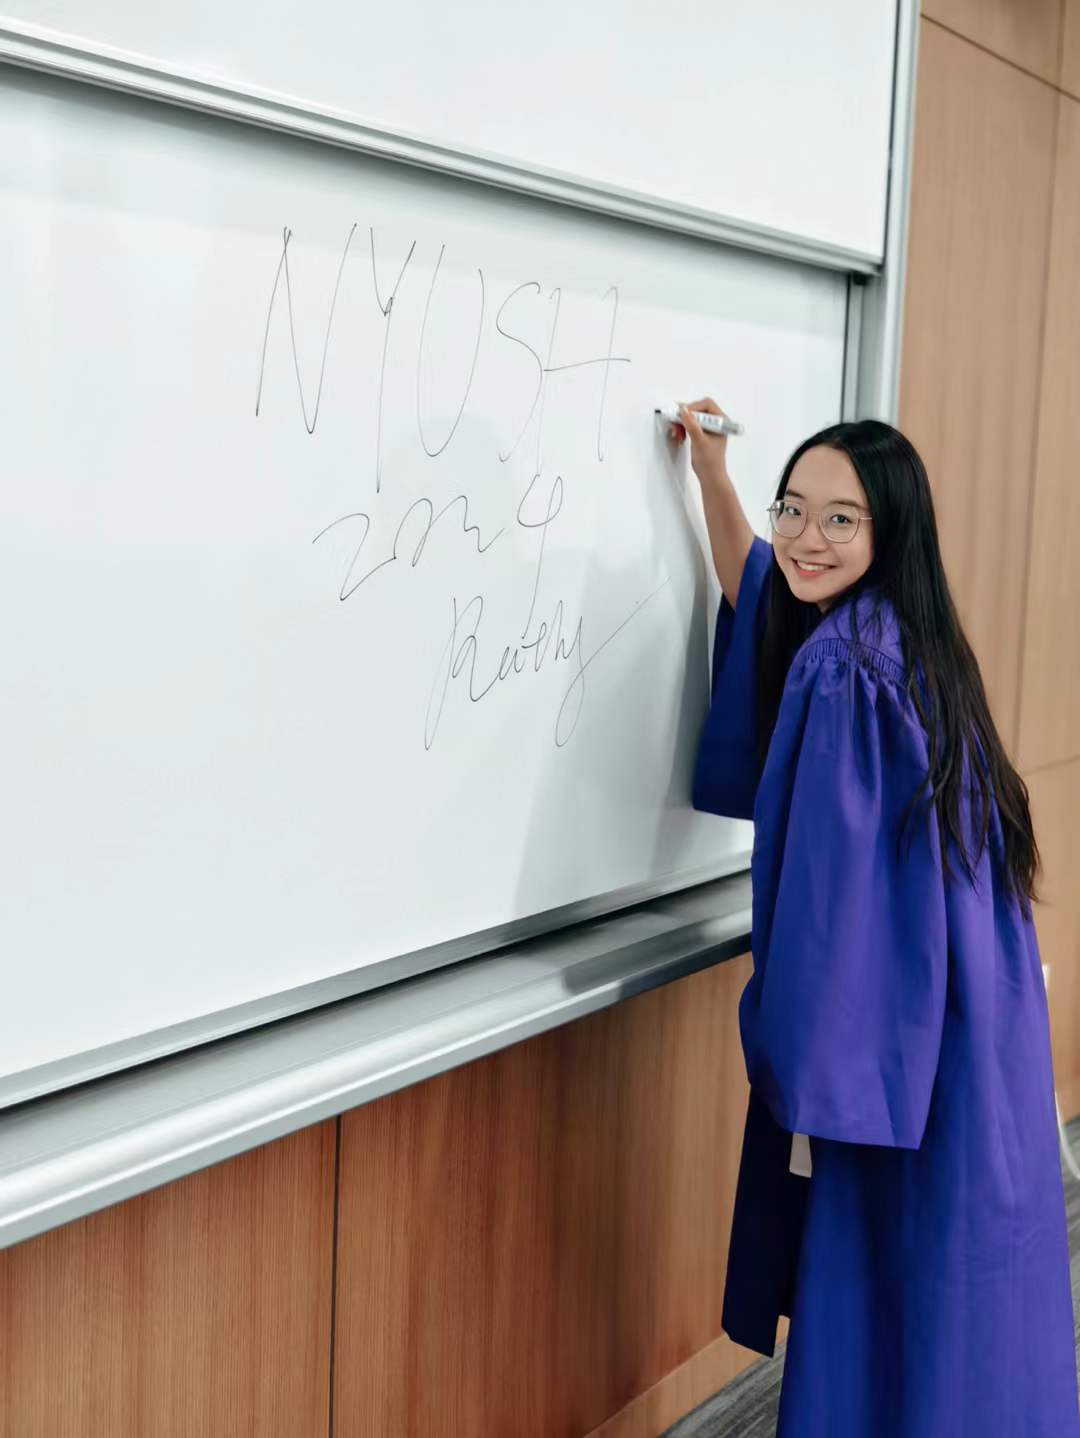 NYUSH
2024
Kathy